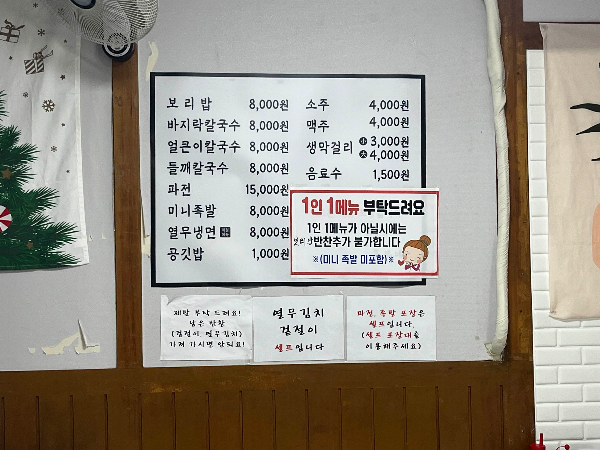 보리밥 8,000원
바지락칼국수 8,000원
얼큰이칼국수 8,000원
들깨칼국수 8,000원
파전 15,000원
미니족발 8,000원
열무냉면 8,000원
공깃밥 1,000원
소주 4,000원
맥주 4,000원
생막걸리 小 3,000원
大 4,000원
음료수 1,500원
1인 1메뉴 부탁드려요
1인 1메뉴가 아닐시에는
보리밥 반찬추가 불가합니다
※(미니 족발 미포함)※
제발 부탁 드려요!
남은 반찬
(겉절이 열무김치)
가져 가시면 안되요!
열무김치
겉절이
셀프입니다
파전, 족발 포장은
셀프입니다.
(셀프 포장대를
이용해주세요)